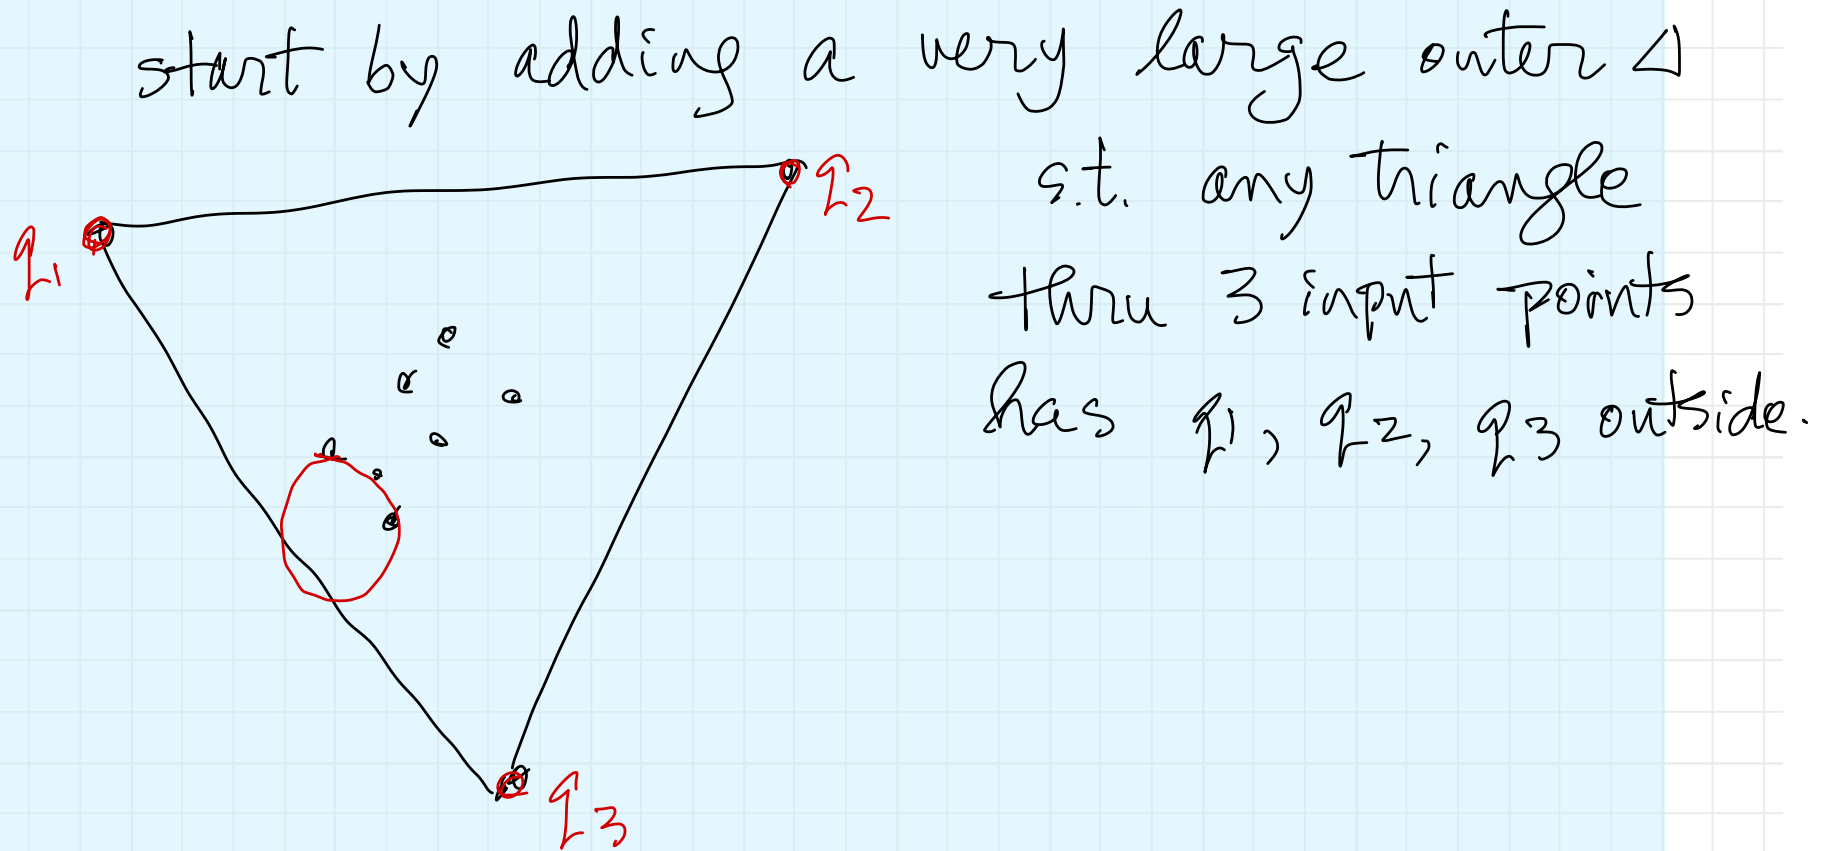 start by adding a very large outer △
q2
s.t. any triangle
q1
thru 3 input points
has q1, q2, q3 outside.
q3